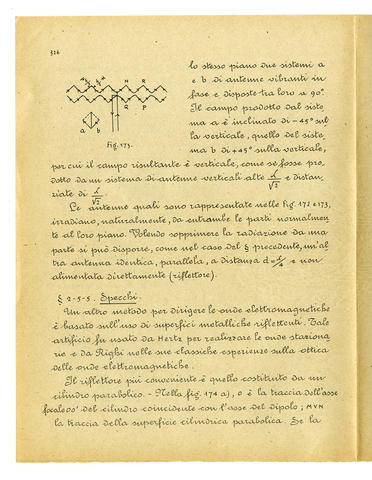 326
lo stesso piano due sistemi a
e b di antenne vibranti in
fase e disposte tra loro a 90°.
Il campo prodotto dal siste
ma a è inclinato di -45° sul
la verticale, quello del siste
ma b di +45° sulla verticale,
a b N R
Q P
a b
Fig. 173.
per cui il campo risultante è verticale, come se fosse pro
dotto da un sistema di antenne verticali alte λ/√2 e distan
ziate di λ/√2
Le antenne quali sono rappresentate nelle Fig. 172 e 173,
irradiano, naturalmente, da entrambe le parti normalmen
te al loro piano. Volendo sopprimere la radiazione da una
parte si può disporre, come nel caso del § precedente, un'al
tra antenna identica, parallela, a distanza d=λ/4 e non
alimentata direttamente (riflettore).
§ 2-5-5. Specchi.
Un altro metodo per dirigere le onde elettromagnetiche
è basato sull'uso di superfici metalliche riflettenti. Tale
artificio fu usato da Hertz per realizzare le onde staziona
rie e da Righi nelle sue classiche esperienze sulla ottica
delle onde elettromagnetiche.
Il riflettore più conveniente è quello costituito da un
cilindro parabolico. - Nella fig. 174 a), O è la traccia dell'asse
focale OO' del cilindro coincidente con l'asse del dipolo; MVN
la traccia della superficie cilindrica parabolica. Se la